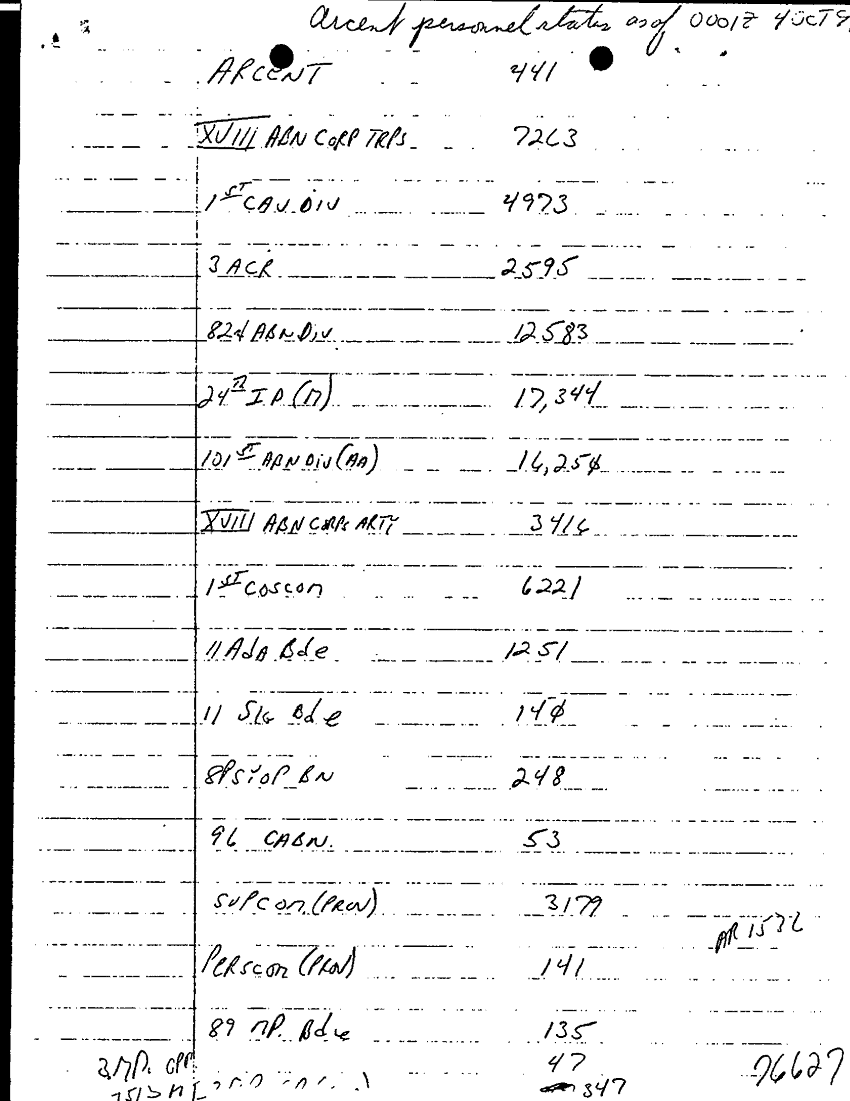 Arcent personnel status as of 0001Z 4 OCT 9
ARCENT 441
XVIII ABN CORP TRPS 7263
1ST CAV DIV 4973
3 ACR 2595
82d ABN Div 12583
24TH ID (M) 17,344
101ST ABN DIV (AA) 16,254
XVIII ABN CORPS ARTY 3416
1ST COSCOM 6221
11 ADA Bde 1251
11 SIG Bde 140
8 PSYOP BN 248
96 CABN. 53
SUPCOM (PROV) 3179
AR 1532
PERSCOM (PROV) 141
89 MP. Bde 135
3 MP. GPP 47
347
76627